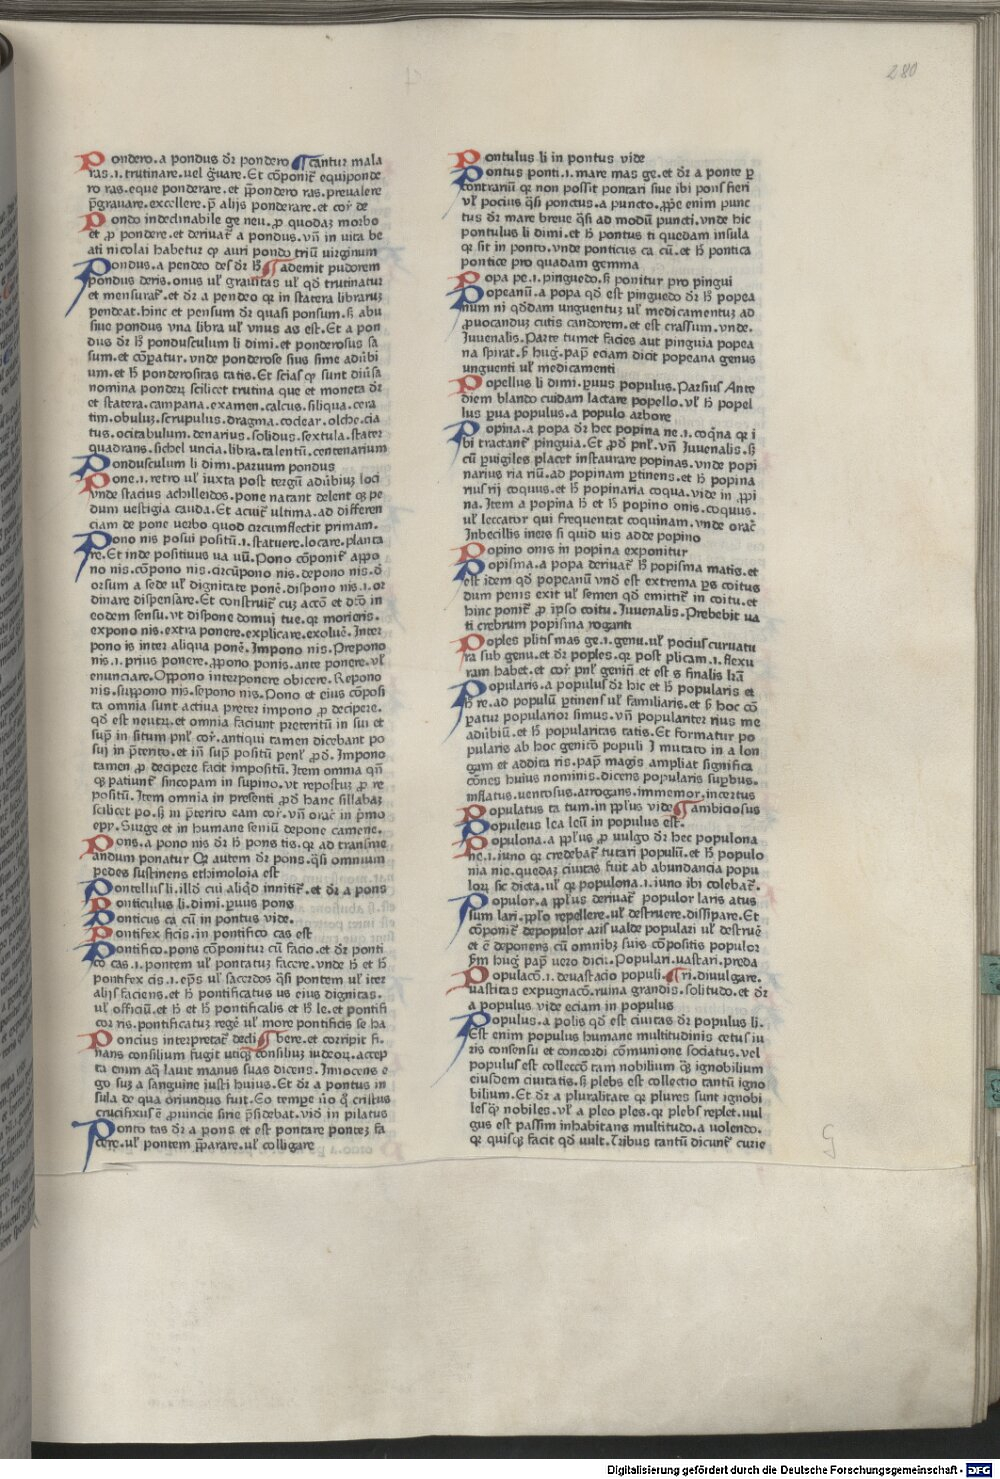 280
Pondero.a pondus dr̄ pondero ¶ cantur mala
ras.i.trutinare.uel g̃uare.Et cōponit̃ equiponde
ro ras.eque ponderare.et p̃pondero ras.preualere
p̃grauare.excellere.p̃ alijs ponderare.et cor̃ de
Pondo indeclinabile ge neu.ꝓ quodaȝ morbo
et ꝓ pondere.et deriuat̃ a pondus.vñ in uita be
ati nicolai habetur ꝙ auri pondo triū uirginum
Pondus.a pendeo des dr̄ ħ ¶ ademit pudorem
pondus deris.onus ul' grauitas ul' qđ trutinatur
et mensurat̃.et dr̄ a pendeo qꝛ in statera libraruȝ
pendeat.hinc et pensum dr̄ quasi ponsum.ꝫ abu
siue pondus vna libra ul' vnus as est.Et a pon
dus dr̄ ħ pondusculum li dimi.et ponderosus sa
sum.et cōparatur.vnde ponderose sius sime aduƀi
um.et ħ ponderositas tatis.Et scias ꝙ sunt diu̓sa
nomina ponderꝝ scilicet trutina que et moneta dr̄
et statera.campana.examen.calcus.siliqua.cera
tim.obuluȝ.scrupulus.dragma.coclear.olche.cia
tus.ocitabulum.denarius.solidus.sextula.stater
quadrans.sichel uncia.libra.talentū.centenarium
Pondusculum li dimi.paruum pondus
Pone.i.retro ul' iuxta post tergū aduƀiuȝ loci
vnde stacius achilleidos.pone natant delent qȝ pe
dum uestigia cauda.Et acuit̃ ultima.ad differen
ciam de pone uerbo quod circumflectit primam.
Pono nis posui positū.i.statuere.locare.planta
re.Et inde positiuus ua uū.Pono cōponit̃ appo
no nis.cōpono nis.circūpono nis.depono nis.d
orsum a sede ul' dignitate ponẽ.dispono nis.i.or
dinare dispensare.Et construit̃ cuȝ accō et dtō in
eodem sensu.vt dispone domui tue.qꝛ morieris.
expono nis.extra ponere.explicare.exoluẽ.Inter
pono is inter aliqua ponẽ.Impono nis.Prepono
nis.i.prius ponere.ꝓpono ponis.ante ponere.ul'
enunciare.Oppono interponere obicere.Repono
nis.suppono nis.sepono nis.Pono et eius cōposi
ta omnia sunt actiua preter impono ꝓ decipere.
qđ est neutꝝ.et omnia faciunt preteritū in sui et
sup̃ in situm pnl' cor̃.antiqui tamen dicebant po
sij in p̃terito.et iñ sup̃ positū penl' ꝓd.Impono
tamen ꝓ decipere facit impositū.Item omnia qñ
qȝ patiunt̃ sincopam in supino.ut repostuȝ ꝓ re
positū.Item omnia in presenti ꝓd hanc sillabaȝ
scilicet po.ꝫ in p̃terito eam cor̃.vñ oraẽ in p̃mo
epy.Surge et in humane seniū depone camene.
Pons.a pono nis dr̄ ħ pons tis.qꝛ ad transme
andum ponatur Qꝛ autem dr̄ pons.q̃si omnium
pedes sustinens ethimoloia est
Pontellus li.illđ cui aliqđ innitit̃.et dr̄ a pons
Ponticulus li.dimi.ꝑuus pons
Ponticus ca cū in pontus vide.
Pontifex ficis.in pontifico cas est
Pontifico.pons cōponitur cū facio.et dr̄ ponti
co cas.i.pontem ul' pontatuȝ facere.vnde ħ et ħ
pontifex cis.i.ep̃s ul' sacerdos q̃si pontem ul' iter
alijs faciens.et ħ pontificatus us eius dignitas.
ul' officiū.et ħ et ħ pontificalis et ħ le.et pontifi
cor ris.pontificatuȝ regẽ ul' more pontificis se ha
Poncius interpretat̃ decli ¶ bere.et corripit fi.
nans consilium fugit utiqȝ consiliuȝ iudeoꝝ.accep
ta enim aq̃ lauit manus suas dicens.Innocens e
go suȝ a sanguine iusti huius.Et dr̄ a pontus in
sula de qua oriundus fuit.Eo tempe ūo q̃ cristus
crucifixus ē ꝓuincie sirie p̃sidebat.vidẽ in pilatus
Ponto tas dr̄ a pons et est pontare ponteȝ fa
cere.ul' pontem p̃parare.ul' colligare
Pontulus li in pontus vide
Pontus ponti.i.mare mas ge.et dr̄ a ponte ꝑ
contrariū qꝛ non possit pontari siue ibi pons fieri
vl' pocius q̃si ponctus.a puncto.ꝓpe enim punc
tus dr̄ mare breue q̃si ad modū puncti.vnde hic
pontulus li dimi.et ħ pontus ti quedam insula
qꝛ sit in ponto.vnde ponticus ca cū.et ħ pontica
pontice pro quadam gemma
Popa pe.i.pinguedo.ꝫ ponitur pro pingui
Popeanū.a popa qđ est pinguedo dr̄ ħ popea
num ni qđdam unguentuȝ ul' medicamentuȝ ad
ꝓuocanduȝ cutis candorem.et est crassum.vnde.
Iuuenalis.Parte tumet facies aut pinguia popea
na spirat.ꝫ hug̃.pap̃ eciam dicit popeana genus
unguenti ul' medicamenti
Popellus li dimi.ꝑuus populus.Parsius Ante
diem blando cuidam lactare popello.vl' ħ popel
lus ꝑua populus.a populo arbore
Popina.a popa dr̄ hec popina ne.i.coq̃na qꝛ i
bi tractant̃ pinguia.Et ꝓđ pnl'.vñ Iuuenalis.ꝫ
cū ꝑuigiles placet instaurare popinas.vnde popi
narius ria riū.ad popinam ꝑtinens.et ħ popina
rius rij coquus.et ħ popinaria coqua.vide in ꝓpi
na.Item a popina ħ et ħ popino onis.coquus.
ul' leccator qui frequentat coquinam.vnde oraẽ
Inbecillis iners si quid uis adde popino
Popino onis in popina exponitur
Popisma.a popa deriuat̃ ħ popisma matis.et
est idem qđ popeanū vnđ est extrema ꝑs coitus
dum penis exit ul' semen qđ emittit̃ in coitu.et
hinc ponit̃ ꝓ ipso coitu.Iuuenalis.Prebebit ua
ti crebrum popisina roganti
Poples plitis mas ge.i.genu.ul' pocius curuatu
ra sub genu.et dr̄ poples.qꝛ post plicam.i.flexu
ram habet.et cor̃ pnl' geniti et est s finalis lr̃a
Popularis.a populus dr̄ hic et ħ popularis et
ħ re.ad populū ꝑtinens ul' familiaris.et ꝫ hoc cō
ꝑatur popularior simus.vñ populariter rius me
aduƀiū.et ħ popularitas tatis.Et formatur po
pularis ab hoc genito populi I mutato in a lon
gam et addita ris.pap̃ magis ampliat significa
cōnes huius nominis.dicens popularis suꝑbus.
inflatus.uentosus.arrogans.immemor.incertus
Populatus ta tum.in ppl'us vide ¶ ambiciosus
Populeus lea leū in populus est.
Populona.a ppl'us ꝓ uulgo dr̄ hec populona
ne.i.iuno qꝛ credebat̃ tutari populū.et ħ populo
nia nie.quedaȝ ciuitas fuit ab abundancia popu
loꝝ sic dicta.ul' qꝛ populona.i.iuno ibi colebat̃.
Populor.a ppl'us deriuat̃ populor laris atus
sum lari.ppl'o repellere.ul' destruere.dissipare.Et
cōponit̃ depopulor aris ualde populari ul' destruẽ
et ē deponens cū omnibȝ suis cōpositis populor
ꝫm hug̃ pap̃ uero dicit.Populari.uastari.preda
Populacō.i.deuastacio populi. ¶ ri.diuulgare.
uastitas expugnacō.ruina grandis.solitudo.et dr̄
a populus vide eciam in populus
Populus.a polis qđ est ciuitas dr̄ populus li.
Est enim populus humane multitudinis cetus iu
ris consensu et concordi cōmunione sociatus.vel
populus est colleccō tam nobilium qȝ ignobilium
eiusdem ciuitatis.ꝫ plebs est collectio tantū igno
bilium.Et dr̄ a pluralitate qꝛ plures sunt ignobi
les qȝ nobiles.vl' a pleo ples.qꝛ plebs replet.uul
gus est passim inhabitans multitudo.a uolendo.
qꝛ quisqȝ facit qđ uult.Tribus tantū dicunt̃ curie
Digitalisierung gefördert durch die Deutsche Forschungsgemeinschaft - DFG